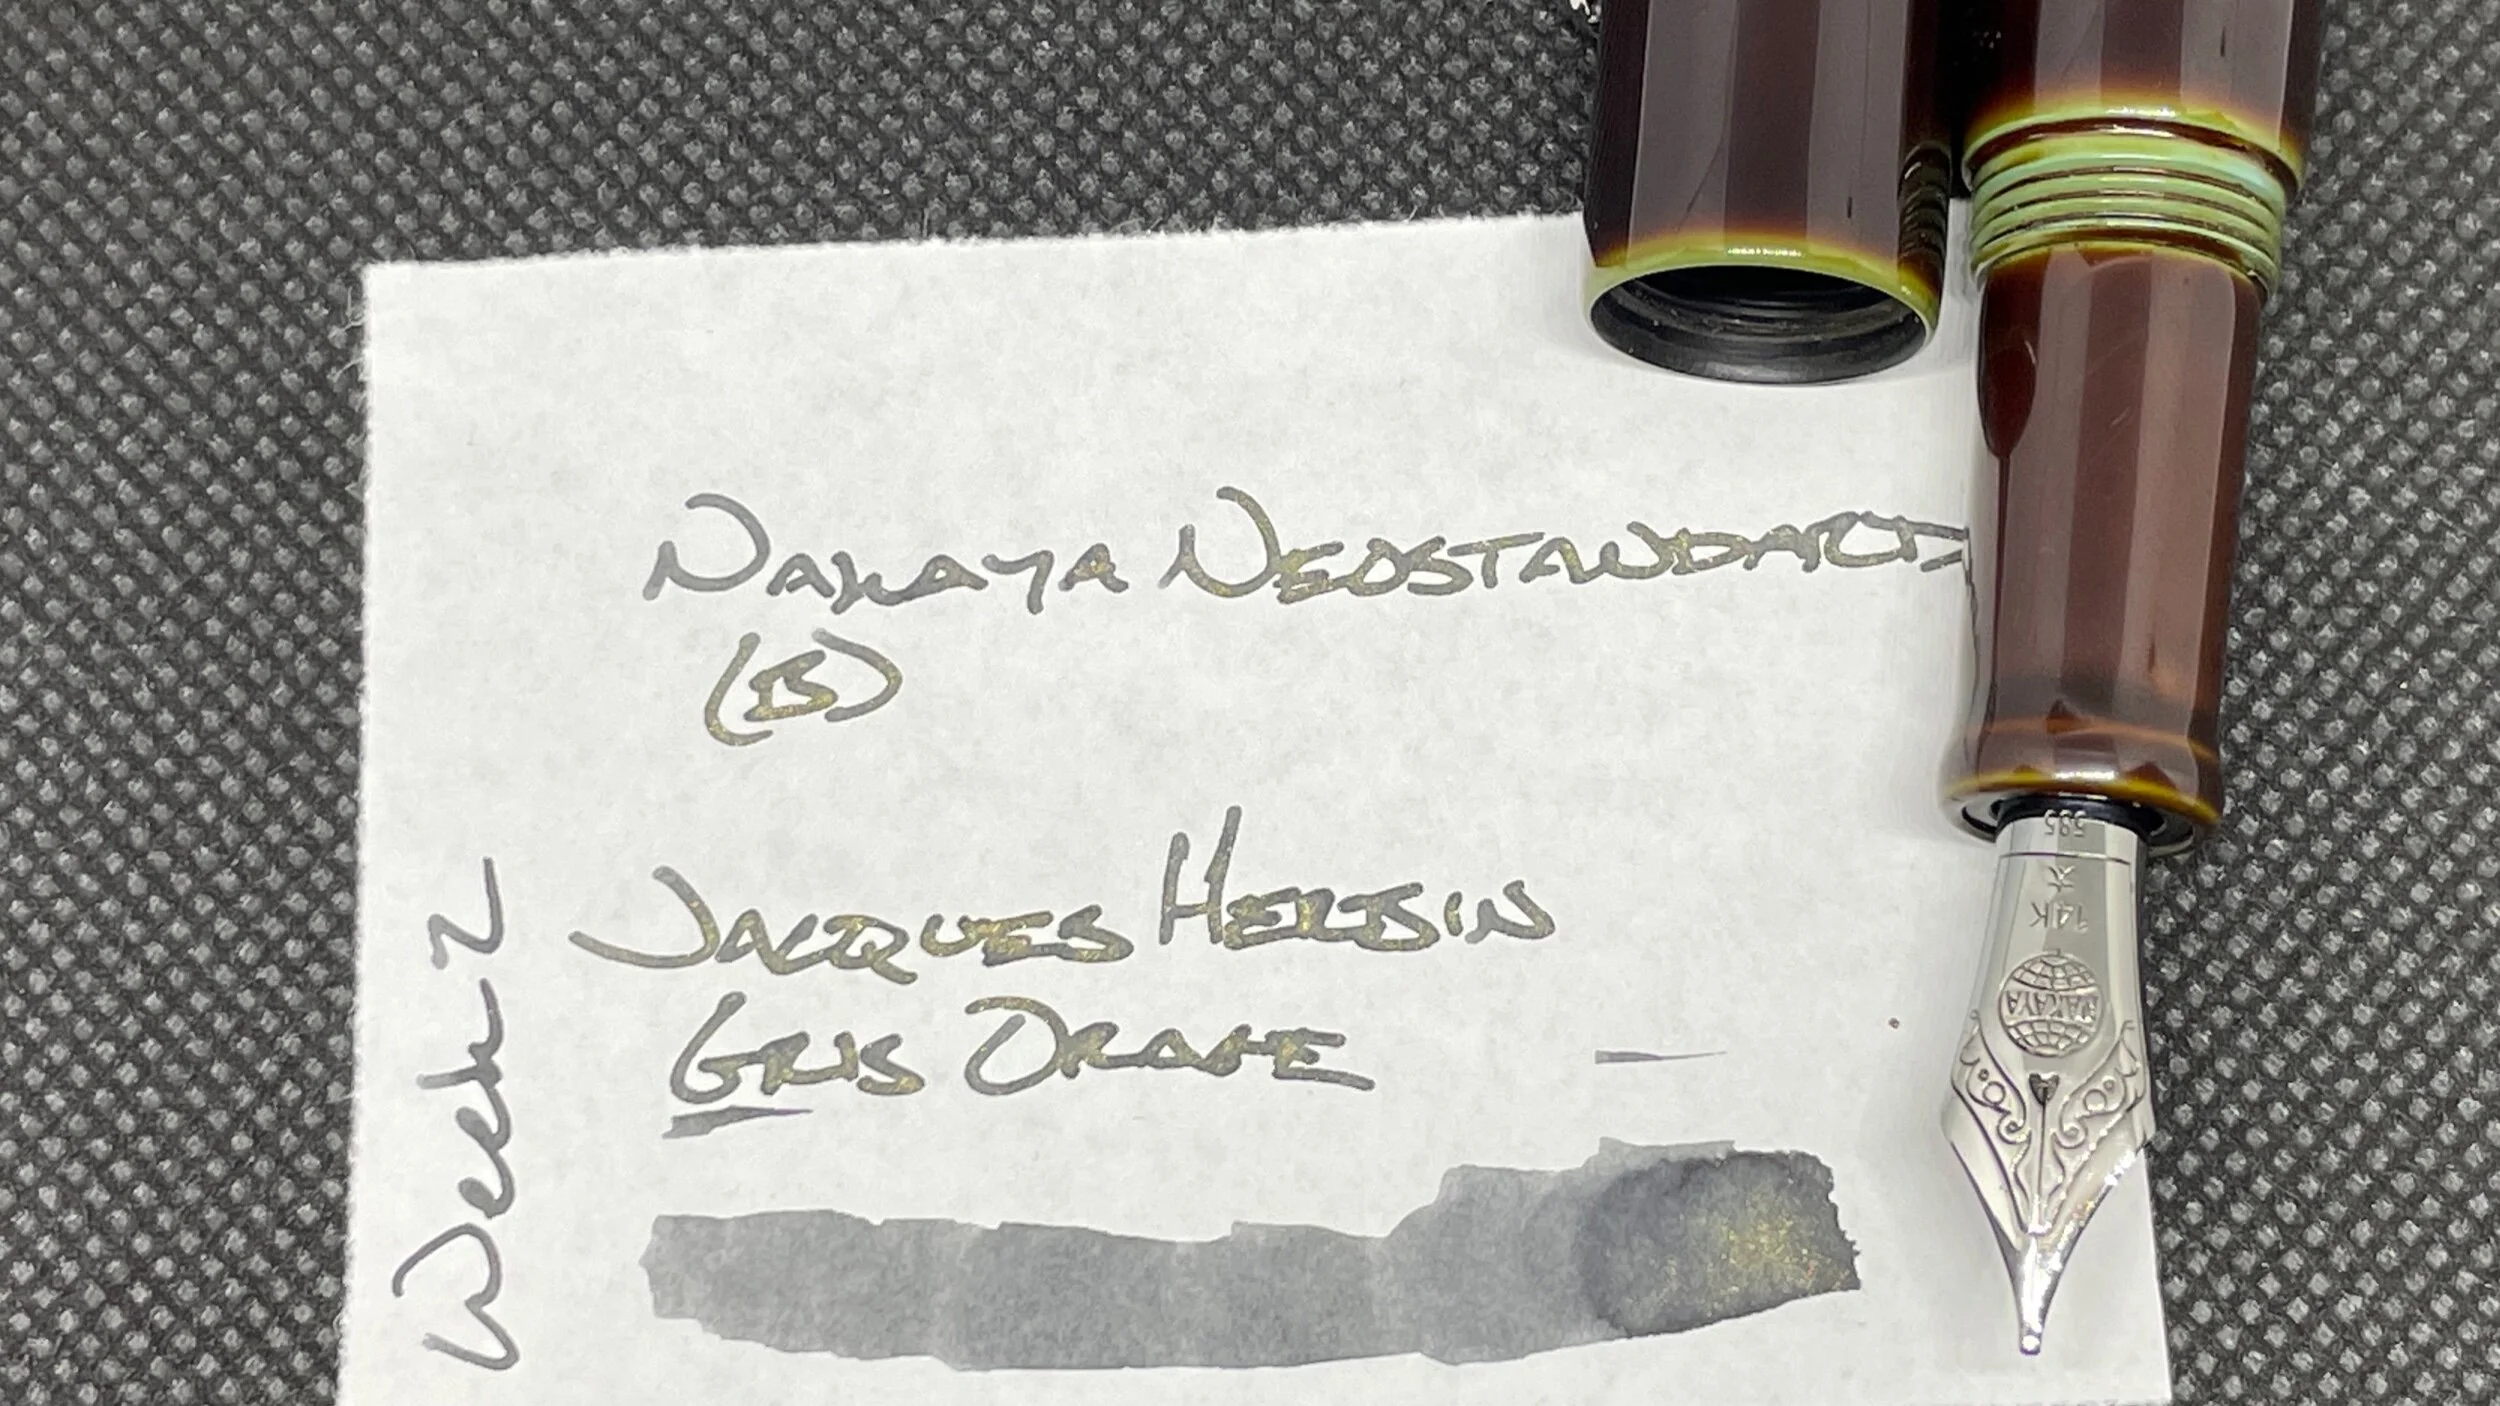 NAKAYA NEOSTANDARD
(B)
JACQUES HERBIN
GRIS ORAGE
Week 2
585
太
14K
NAKAYA